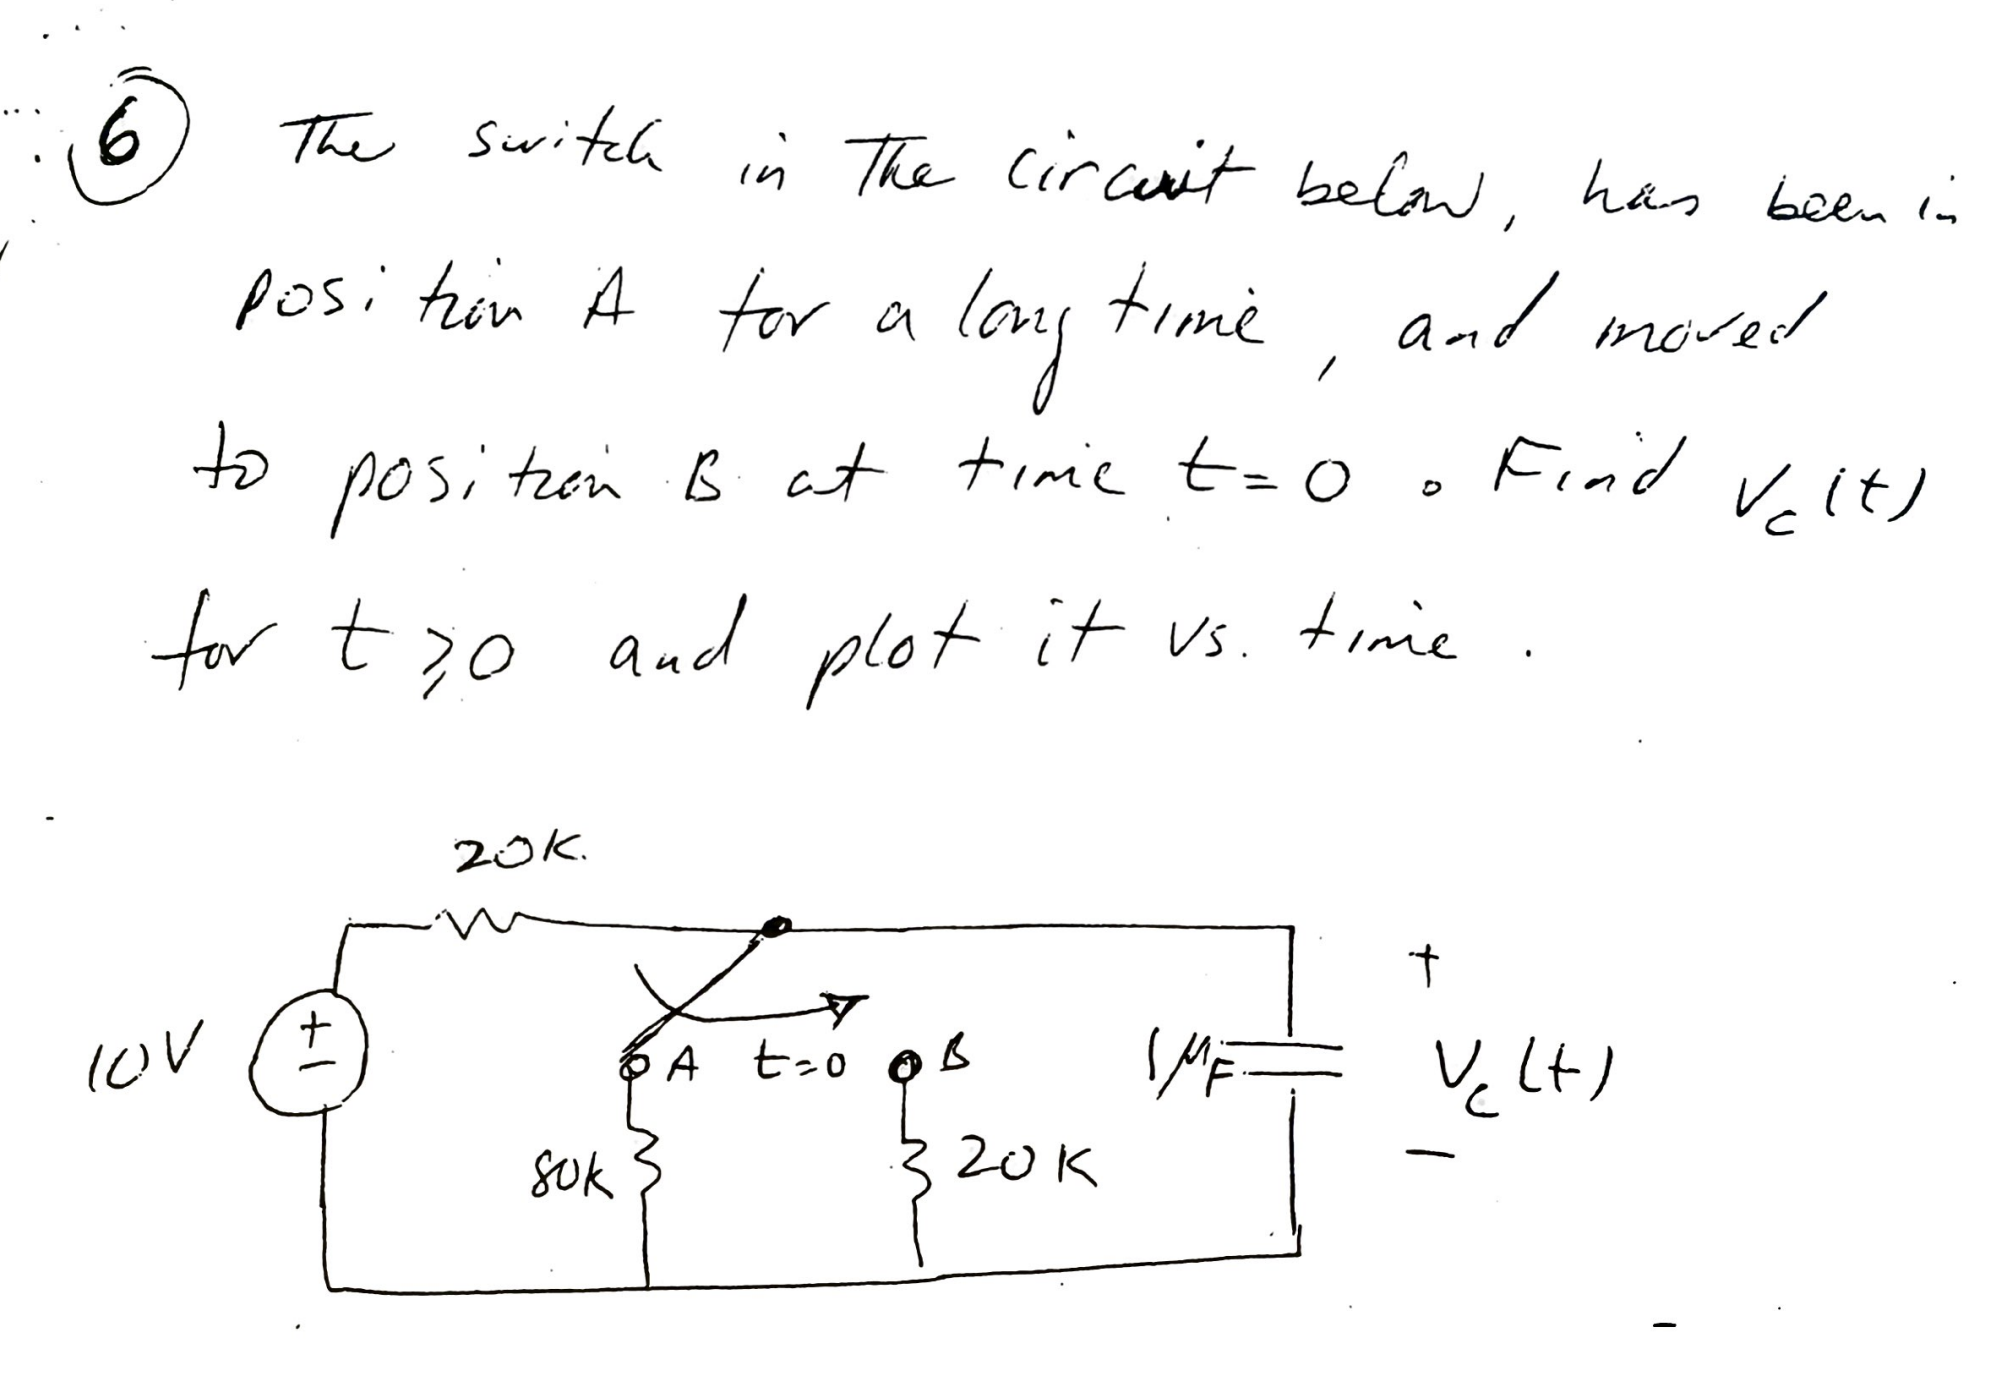 6 The switch in The circuit below, has been in
position A for a long time, and moved
to position B at time t=0. Find Vc(t)
for t ≥ 0 and plot it vs. time.
20K
10V
+
-
A t=0 B
80K
20K
1μF
+
Vc(t)
-